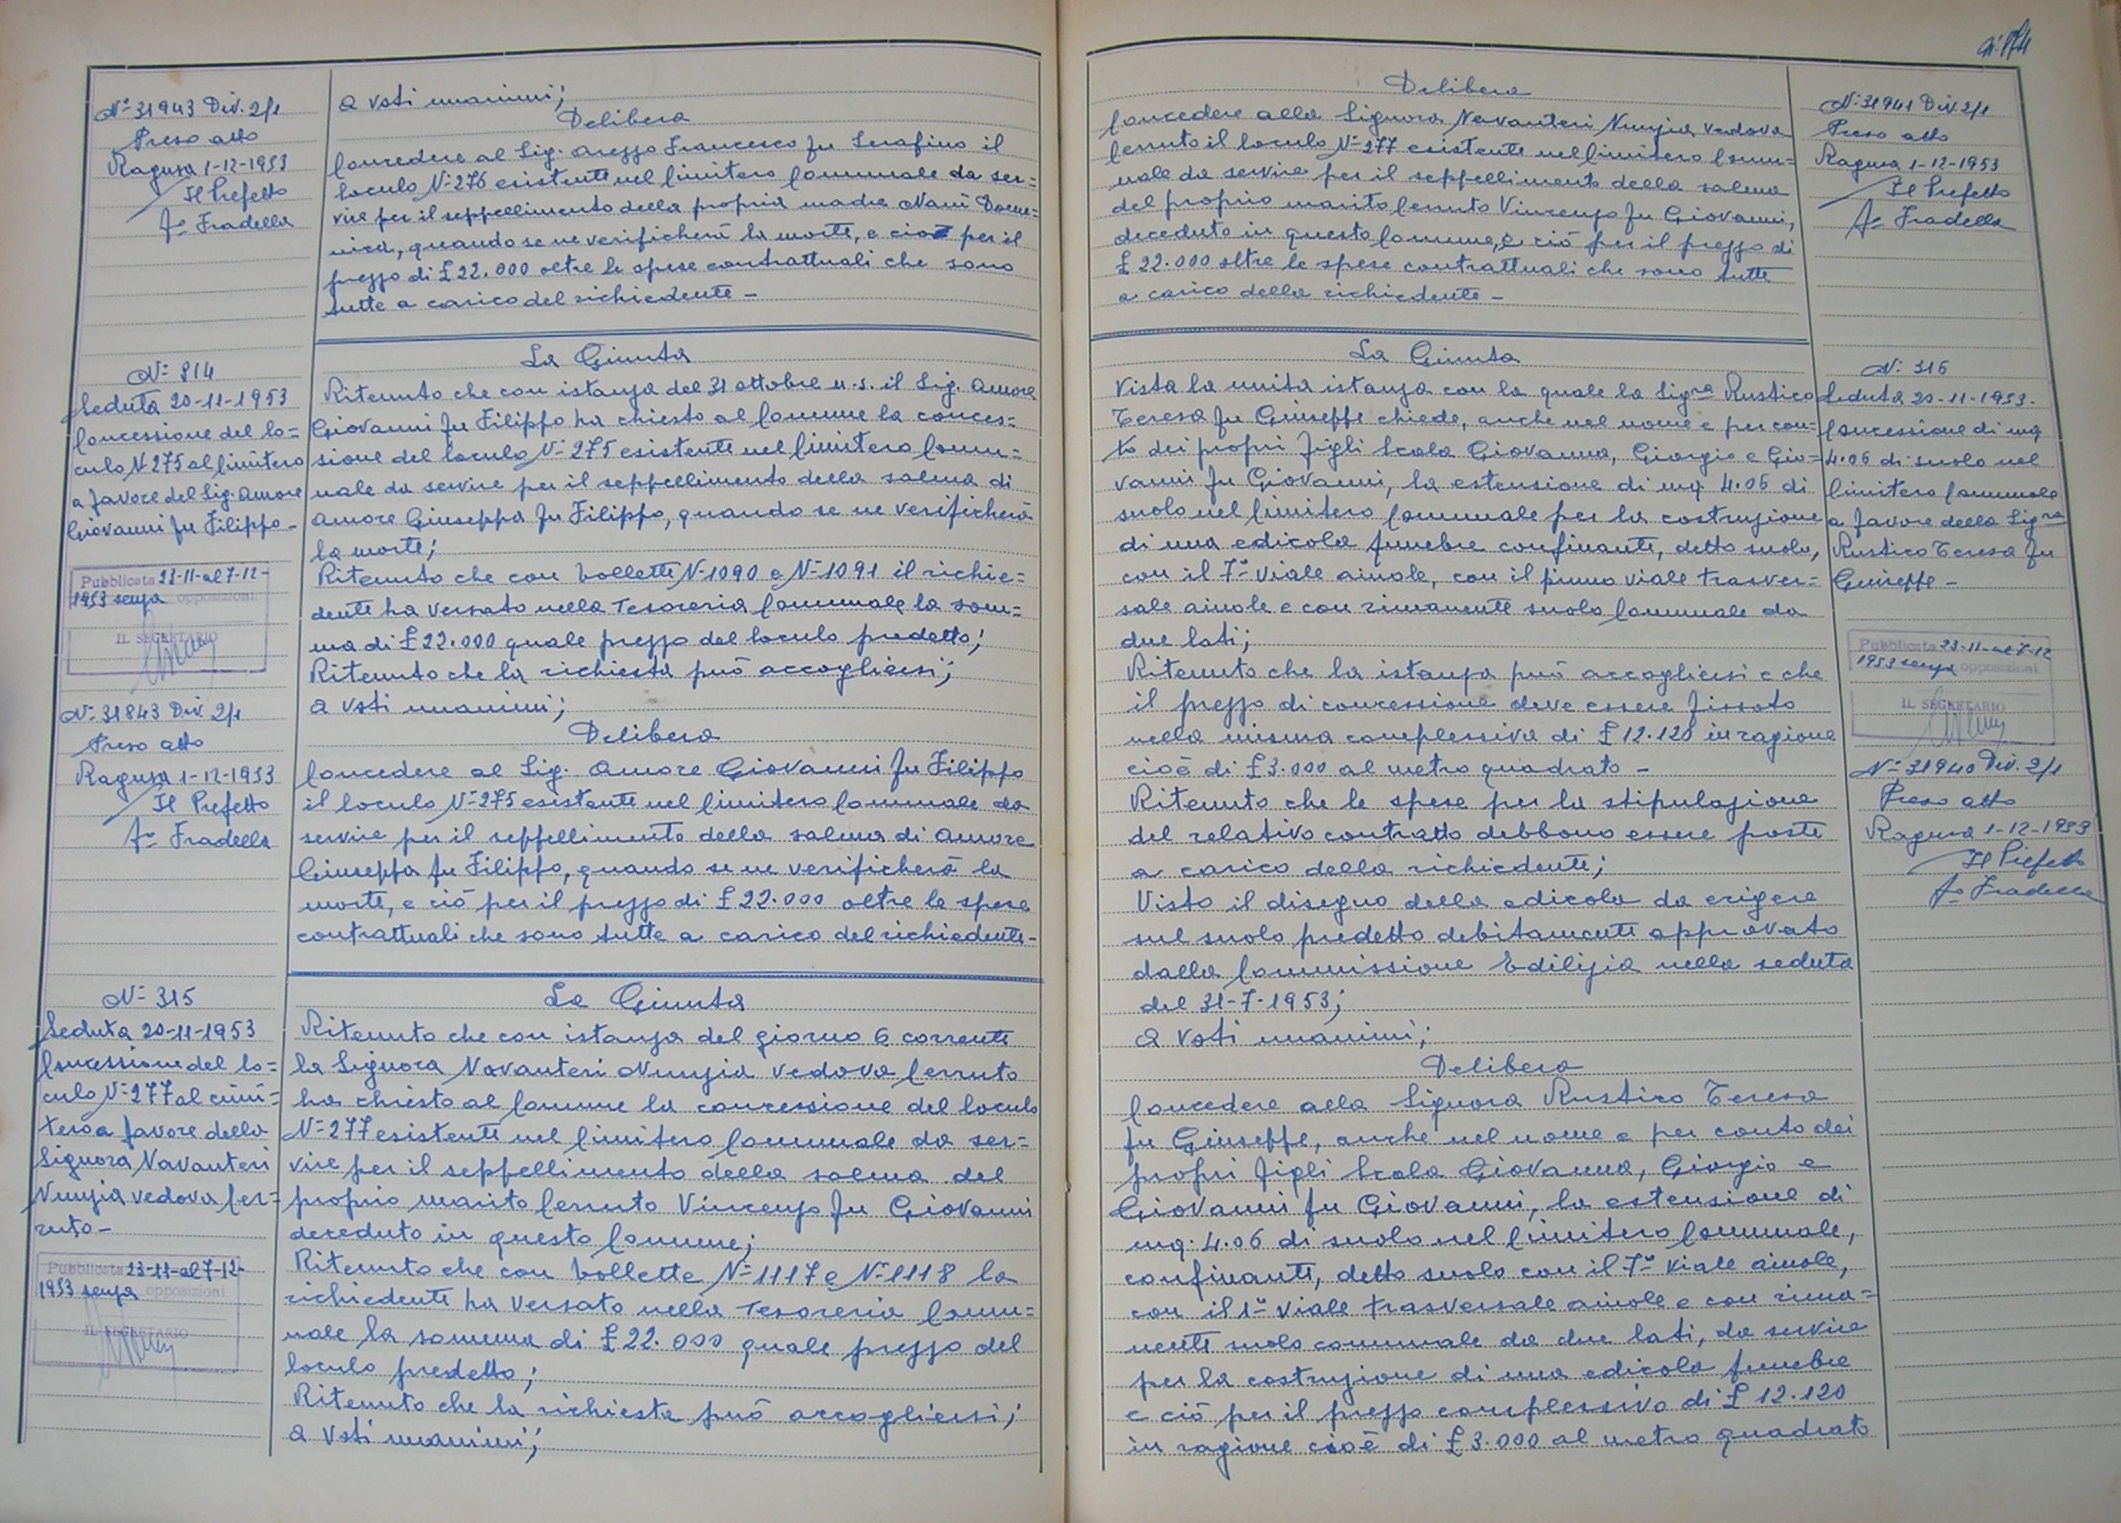 N° 31943 Div. 2/1
Preso atto
Ragusa 1-12-1953
Il Prefetto
Fo Fradella
N° 314
Seduta 20-11-1953
Concessione del lo=
culo N° 275 al Cimitero
a favore del Sig. Amore
Giovanni fu Filippo-
Pubblicata 23-11-al 7-12-
1953 senza opposizioni
IL SEGRETARIO
N° 31843 Div. 2/1
Preso atto
Ragusa 1-12-1953
Il Prefetto
Fo Fradella
N° 315
Seduta 20-11-1953
Concessione del lo=
culo N° 277 al cimi=
tero a favore della
Signora Navanteri
Nunzia vedova Cer=
ruto-
Pubblicata 23-11-al 7-12-
1953 senza opposizioni
IL SEGRETARIO
a voti unanimi;
Delibera
Concedere al Sig. Arezzo Francesco fu Serafino il
loculo N° 276 esistente nel Cimitero Comunale da ser=
vire per il seppellimento della propria madre Nanì Dome=
nica, quando se ne verificherà la morte, e ciò per il
prezzo di £ 22.000 oltre le spese contrattuali che sono
tutte a carico del richiedente-
La Giunta
Ritenuto che con istanza del 31 ottobre u.s. il Sig. Amore
Giovanni fu Filippo ha chiesto al Comune la conces=
sione del loculo N° 275 esistente nel Cimitero Comu=
nale da servire per il seppellimento della salma di
Amore Giuseppa fu Filippo, quando se ne verificherà
la morte;
Ritenuto che con bollette N° 1090 e N° 1091 il richie=
dente ha versato nella Tesoreria Comunale la som=
ma di £ 22.000 quale prezzo del loculo predetto;
Ritenuto che la richiesta può accogliersi;
a voti unanimi;
Delibera
Concedere al Sig. Amore Giovanni fu Filippo
il loculo N° 275 esistente nel Cimitero Comunale da
servire per il seppellimento della salma di Amore
Giuseppa fu Filippo, quando se ne verificherà la
morte, e ciò per il prezzo di £ 22.000 oltre le spese
contrattuali che sono tutte a carico del richiedente-
La Giunta
Ritenuto che con istanza del giorno 6 corrente
la Signora Navanteri Nunzia vedova Cerruto
ha chiesto al Comune la concessione del loculo
N° 277 esistente nel Cimitero Comunale da ser=
vire per il seppellimento della salma del
proprio marito Cerruto Vincenzo fu Giovanni
deceduto in questo Comune;
Ritenuto che con bollette N° 1117 e N° 1118 la
richiedente ha versato nella Tesoreria Comu=
nale la somma di £ 22.000 quale prezzo del
loculo predetto;
Ritenuto che la richiesta può accogliersi;
a voti unanimi;
Delibera
Concedere alla Signora Navanteri Nunzia vedova
Cerruto il loculo N° 277 esistente nel Cimitero Comu=
nale da servire per il seppellimento della salma
del proprio marito Cerruto Vincenzo fu Giovanni,
deceduto in questo Comune, e ciò per il prezzo di
£ 22.000 oltre le spese contrattuali che sono tutte
a carico della richiedente-
La Giunta
Vista la unita istanza con la quale la Sigra Rustico
Teresa fu Giuseppe chiede, anche nel nome e per con=
to dei propri figli Scala Giovanna, Giorgio e Gio=
vanni fu Giovanni, la estensione di mq 4.06 di
suolo nel Cimitero Comunale per la costruzione
di una edicola funebre confinante, detto suolo,
con il 7° viale aiuole, con il primo viale trasver=
sale aiuole e con rimanente suolo Comunale da
due lati;
Ritenuto che la istanza può accogliersi e che
il prezzo di concessione deve essere fissato
nella misura complessiva di £ 12.120 in ragione
cioè di £ 3.000 al metro quadrato-
Ritenuto che le spese per la stipulazione
del relativo contratto debbono essere poste
a carico della richiedente;
Visto il disegno della edicola da erigere
sul suolo predetto debitamente approvato
dalla Commissione Edilizia nella seduta
del 31-7-1953;
a voti unanimi;
Delibera
Concedere alla Signora Rustico Teresa
fu Giuseppe, anche nel nome e per conto dei
propri figli Scala Giovanna, Giorgio e
Giovanni fu Giovanni, la estensione di
mq. 4.06 di suolo nel Cimitero Comunale,
confinante, detto suolo con il 7° viale aiuole,
con il 1° viale trasversale aiuole e con rima=
nente suolo comunale da due lati, da servire
per la costruzione di una edicola funebre
e ciò per il prezzo complessivo di £ 12.120
in ragione cioè di £ 3.000 al metro quadrato
N° 31941 Div. 2/1
Preso atto
Ragusa 1-12-1953
Il Prefetto
Fo Fradella
N. 316
Seduta 20-11-1953.
Concessione di mq
4.06 di suolo nel
Cimitero Comunale
a favore della Sigra
Rustico Teresa fu
Giuseppe-
Pubblicata 23-11-al 7-12
1953 senza opposizioni
IL SEGRETARIO
N° 31940 Div. 2/1
Preso atto
Ragusa 1-12-1953
Il Prefetto
Fo Fradella